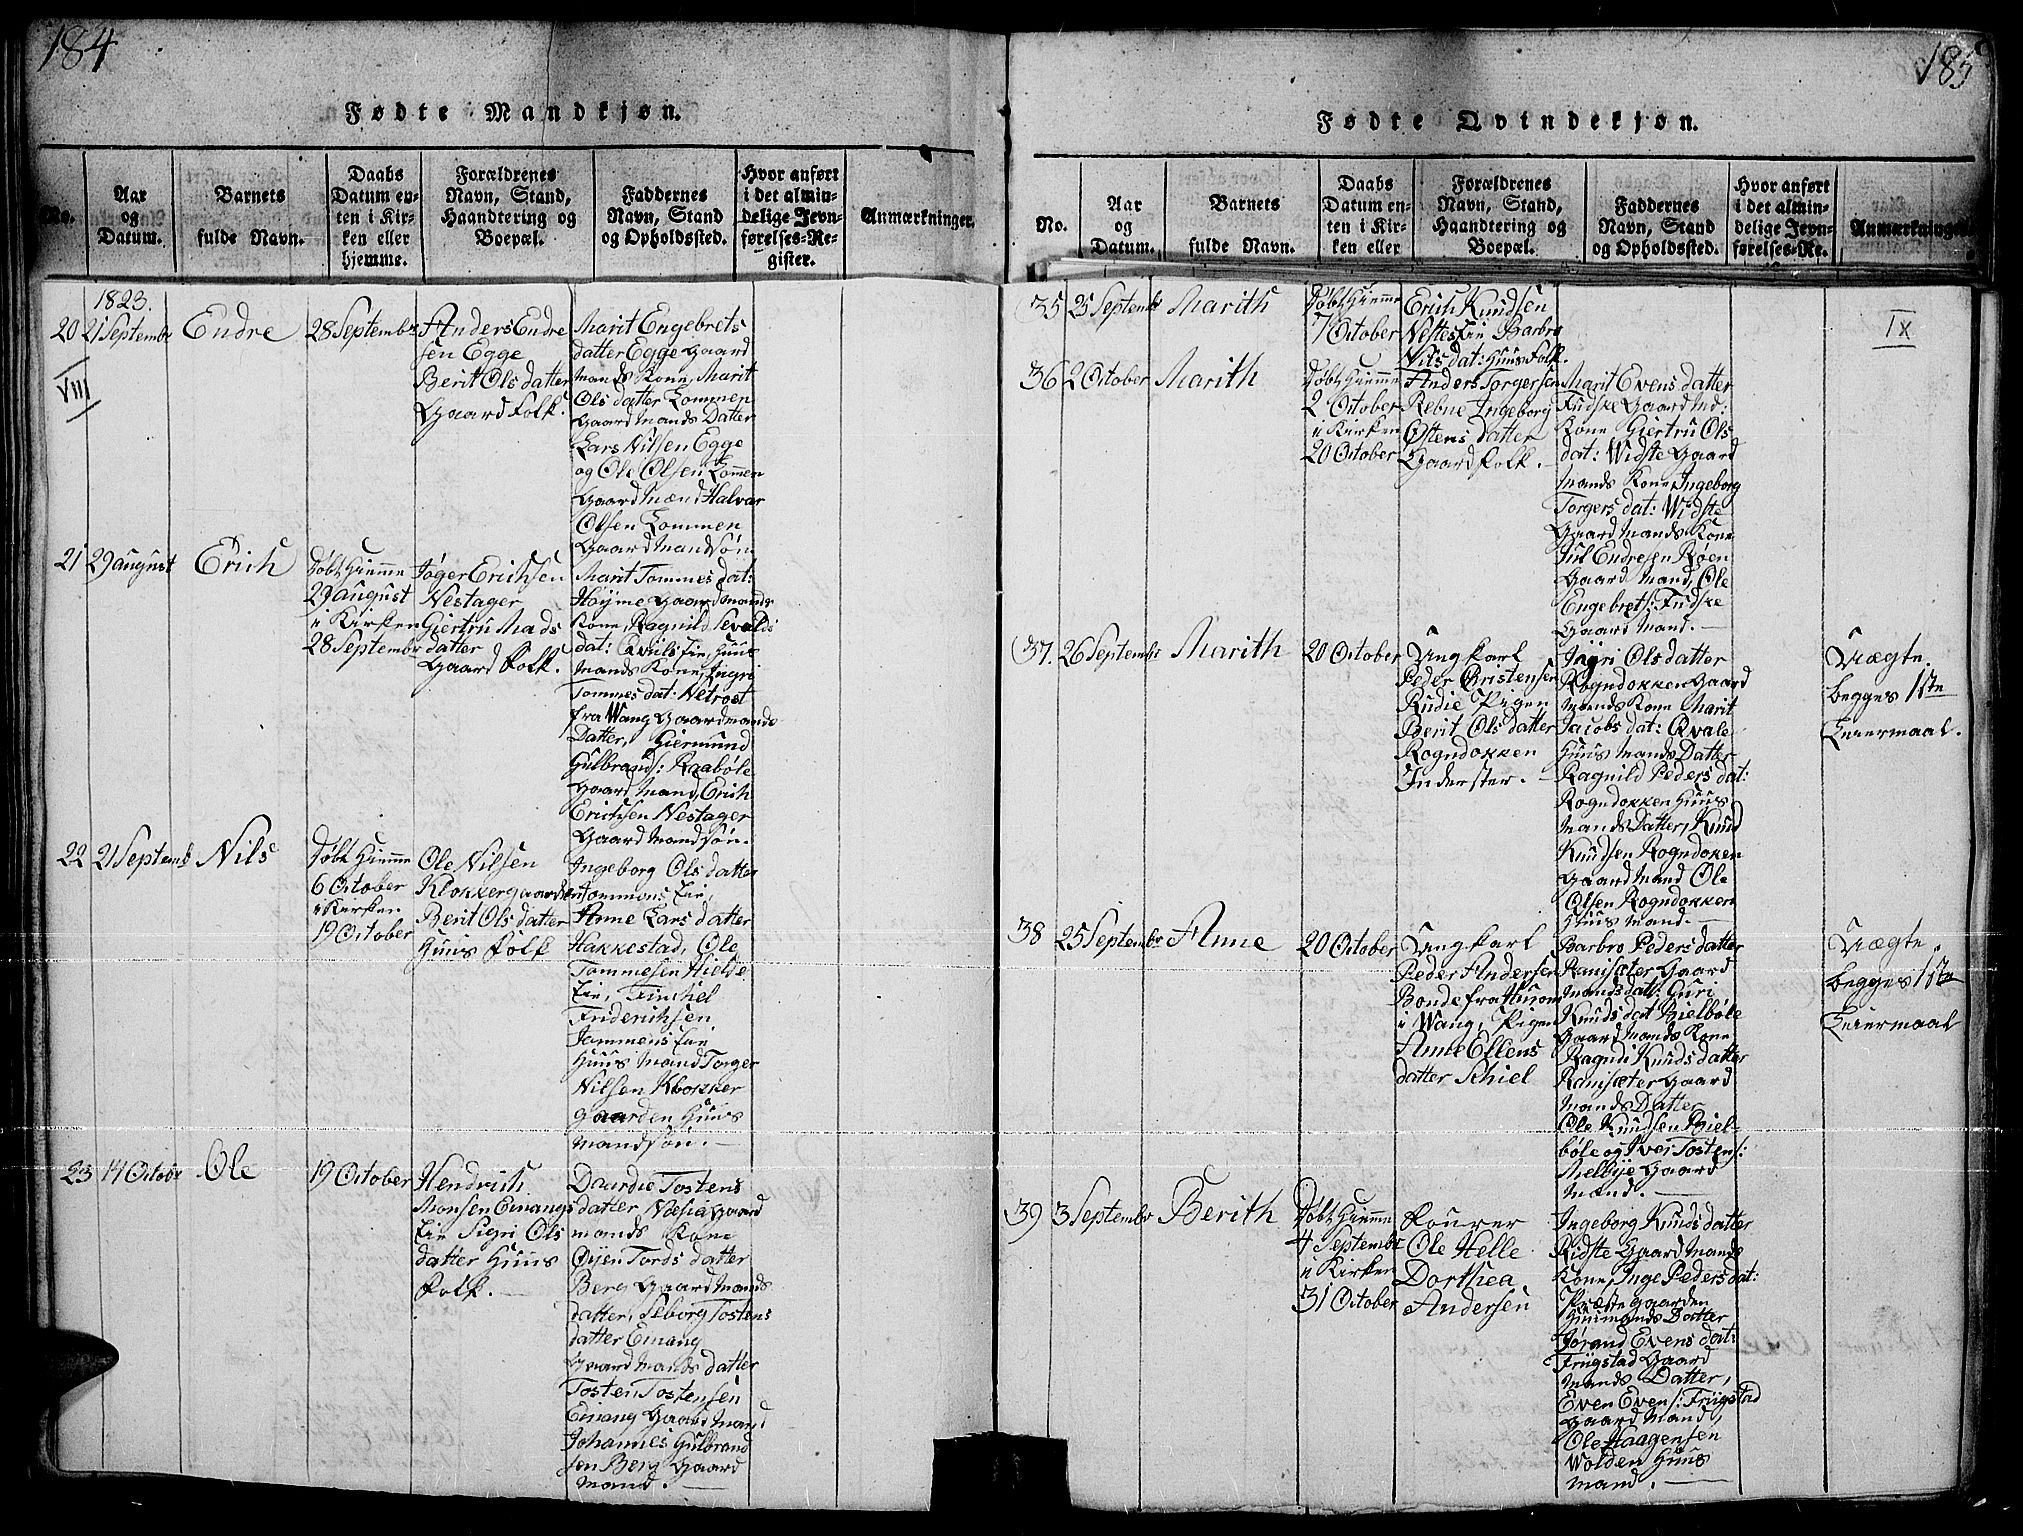 184
Fødte Mandkjøn.
No.
Aar
og
Datum.
Barnets
fulde Navn.
Daabs
Datum en-
ten i Kir-
ken eller
hjemme.
Forældrenes
Navn, Stand,
Haandtering og
Boepæl.
Faddernes
Navn, Stand
og Opholdssted.
Hvor anført
i det almin-
delige Jevn-
førelses-Re-
gister.
Anmærkninger.
1823.
20
21 Septembr
Endre
28 Septembr
Anders Endre
sen Egge
Berit Olsdatter
Gaard Folk.
Marit Engebrets
datter Egge Gaard
mands Kone, Marit
Ols datter Lommen
Gaard mands Datter
Lars Nilsen Egge
og Ole Olsen Lommen
Gaard Mænd Halvar
Olsen Lommen
Gaard Mandsøn
VIII
21
29 august
Erich
Døbt Hiemme
29 august
i Kirken
28 Septembr
Jøger Erichsen
Nestager
Giertru Mads
datter
Gaard Folk.
Marit Tommes dat:
Høyme Gaard mands
Kone, Ragnild Sevalds
dat: Qvalis Eie, Huus
Mands Kone, Ingri
Tommes dat: Netrost
fra Wang Gaardmands
Datter, Giermund
Gulbrands: Raabøle
Gaard Mand, Erich
Erichsen Nestager
Gaard Mandsøn.
22
21 Septemb
Nils
Døbt Hiemme
6 October
i Kirken
19 October
Ole Nilsen
Klokkergaarden
Berit Ols datter
Huus Folk
Ingeborg Ols datter
Tommens Eie,
Anne Lars datter
Hakkestad, Ole
Tommesen Hielde
Eie, Finchel
Friderichsen
Jommens Eie
Huus Mand Torger
Nilsen Klokker
gaarden Huus
mandsøn.
23
14 Octobr
Ole
19 October
Hendrich
Monsen Einangs
Eie Sigri Ols
datter Huus
Folk.
Daardie Tostens
datter Næsia Gaard
mands Kone
Øijen Tords datter
Berg Gaard Mands
datter, Seborg Tostens
datter Einang
Gaard Mands datter
Tosten Tostensen
Einang Gaard Mand
Johannes Gulbrand
sen Berg Gaard
Mand.
185
Fødte Qvindekjøn.
No.
Aar
og
Datum.
Barnets
fulde Navn.
Daabs
Datum en-
ten i Kir-
ken eller
Forældrenes
Navn, Stand,
Haandtering og
Boepæl.
Faddernes
Navn, Stand
og Opholdssted.
Hvor anført
i det almin-
delige Jevn-
førelses-Re-
Anmærkninger.
35
25 Septemb
Marith
Døbt Hiemme
7 October
Erich Knudsen
Nestes Eie Barbro
Nils dat: Huus Folk.
IX
36
2 October
Marith
Døbt Hiemme
2 October
i Kirken
20 October
Anders Torgersen
Rebne Ingeborg
Østens datter
Gaard Folk.
Marit Evens datter
Fudske Gaard Md:
Kone Giertru Ols
dat: Widste Gaard
Mands Kone, Ingeborg
Torgers dat: Widste
Gaard Mands Kone
Jul Endresen Røen
Gaard Mand, Ole
Engebrets: Fudske
Gaard Mand.
37.
26 Septembr
Marith
20 October
Ung karl
Peder Christensen
Rudie Pigen
Berit Ols datter
Rogndokken
Inderster.
Ingri Ols datter
Rogndokken Gaard
Mands Kone Marit
Jacobs dat: Qvale
Huus Mands Datter
Ragnild Peders dat:
Rogndokken Huus
Mands Datter, Knud
Knudsen Rogndoken
Gaard Mand Ole
Olsen Rogndokken
Huus Mand.
Uægte.
begges 1ste
Leiermaal.
38
25 Septembr
Anne
20 October
Ung karl
Peder Andersen
Bonde fra Hurom
i Wang, Pigen
Anne Ellens
datter Schiel
Barbro Peders datter
Ranisæter Gaard
Mands dat: Guri
Knuds dat Bielbøle
Gaard Mands Kone
Ragndi Knuds datter
Ranisæter Gaard
Mands Datter
Ole Knudsen Biel-
bøle og Iver Tostens:
Melbye Gaard
Mænd.
Uægte.
begges 1ste
Leiermaal
39
3 Septembr
Berith
Døbt Hiemme
4 Septembr
i Kirken
31 October
Fourer
Ole Helle
Dorthea
Andersen
Ingeborg Knuds datter
Ridste Gaard Mands
Kone, Inge Peders dat:
Præstegaarden
Huusmands Datter
Jørand Evens dat:
Frügstad Gaard
Mands Datter,
Even Evens: Frügstad
Gaard Mand,
Ole Haagensen
Wolden Huus
mand.